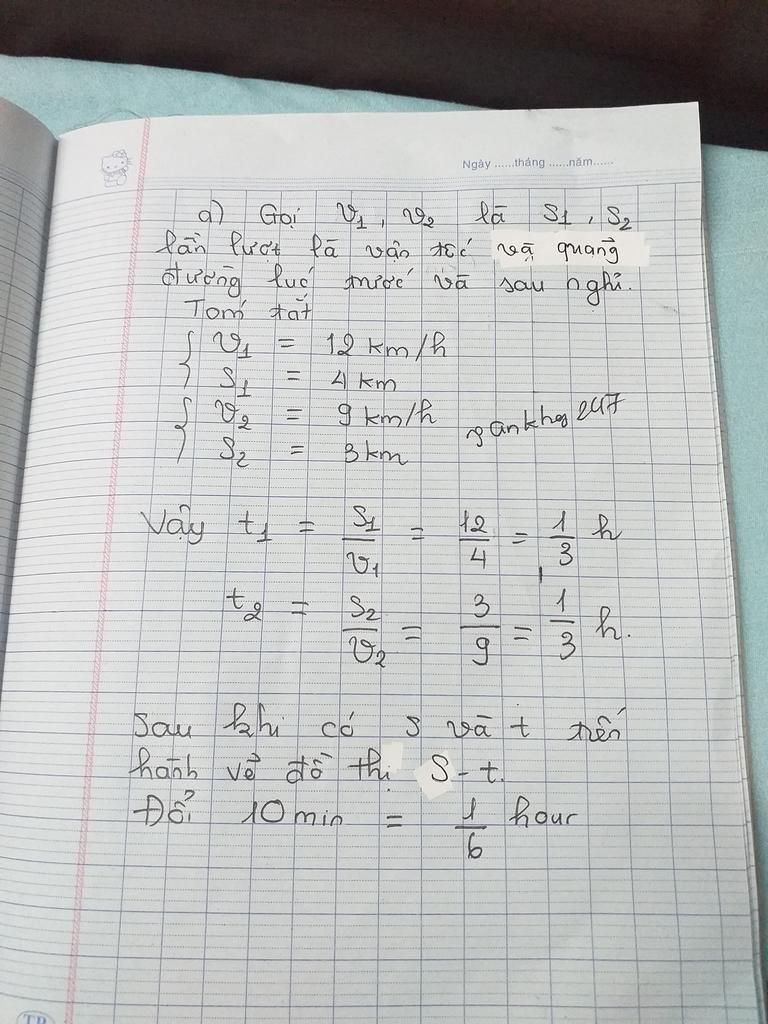 Ngày ......tháng ......năm......
a) Gọi v₁, v₂ là S₁, S₂
lần lượt là vận tốc và quảng
đường lúc trước và sau nghỉ.
Tóm tắt
v₁ = 12 km/h
S₁ = 4 km
v₂ = 9 km/h
S₂ = 3 km
gankhog 247
Vậy t₁ = S₁/v₁ = 12/4 = 1/3 h
t₂ = S₂/v₂ = 3/9 = 1/3 h.
Sau khi có s và t tiến
hành vẽ đồ thị S-t.
Đổi 10 min = 1/6 hour